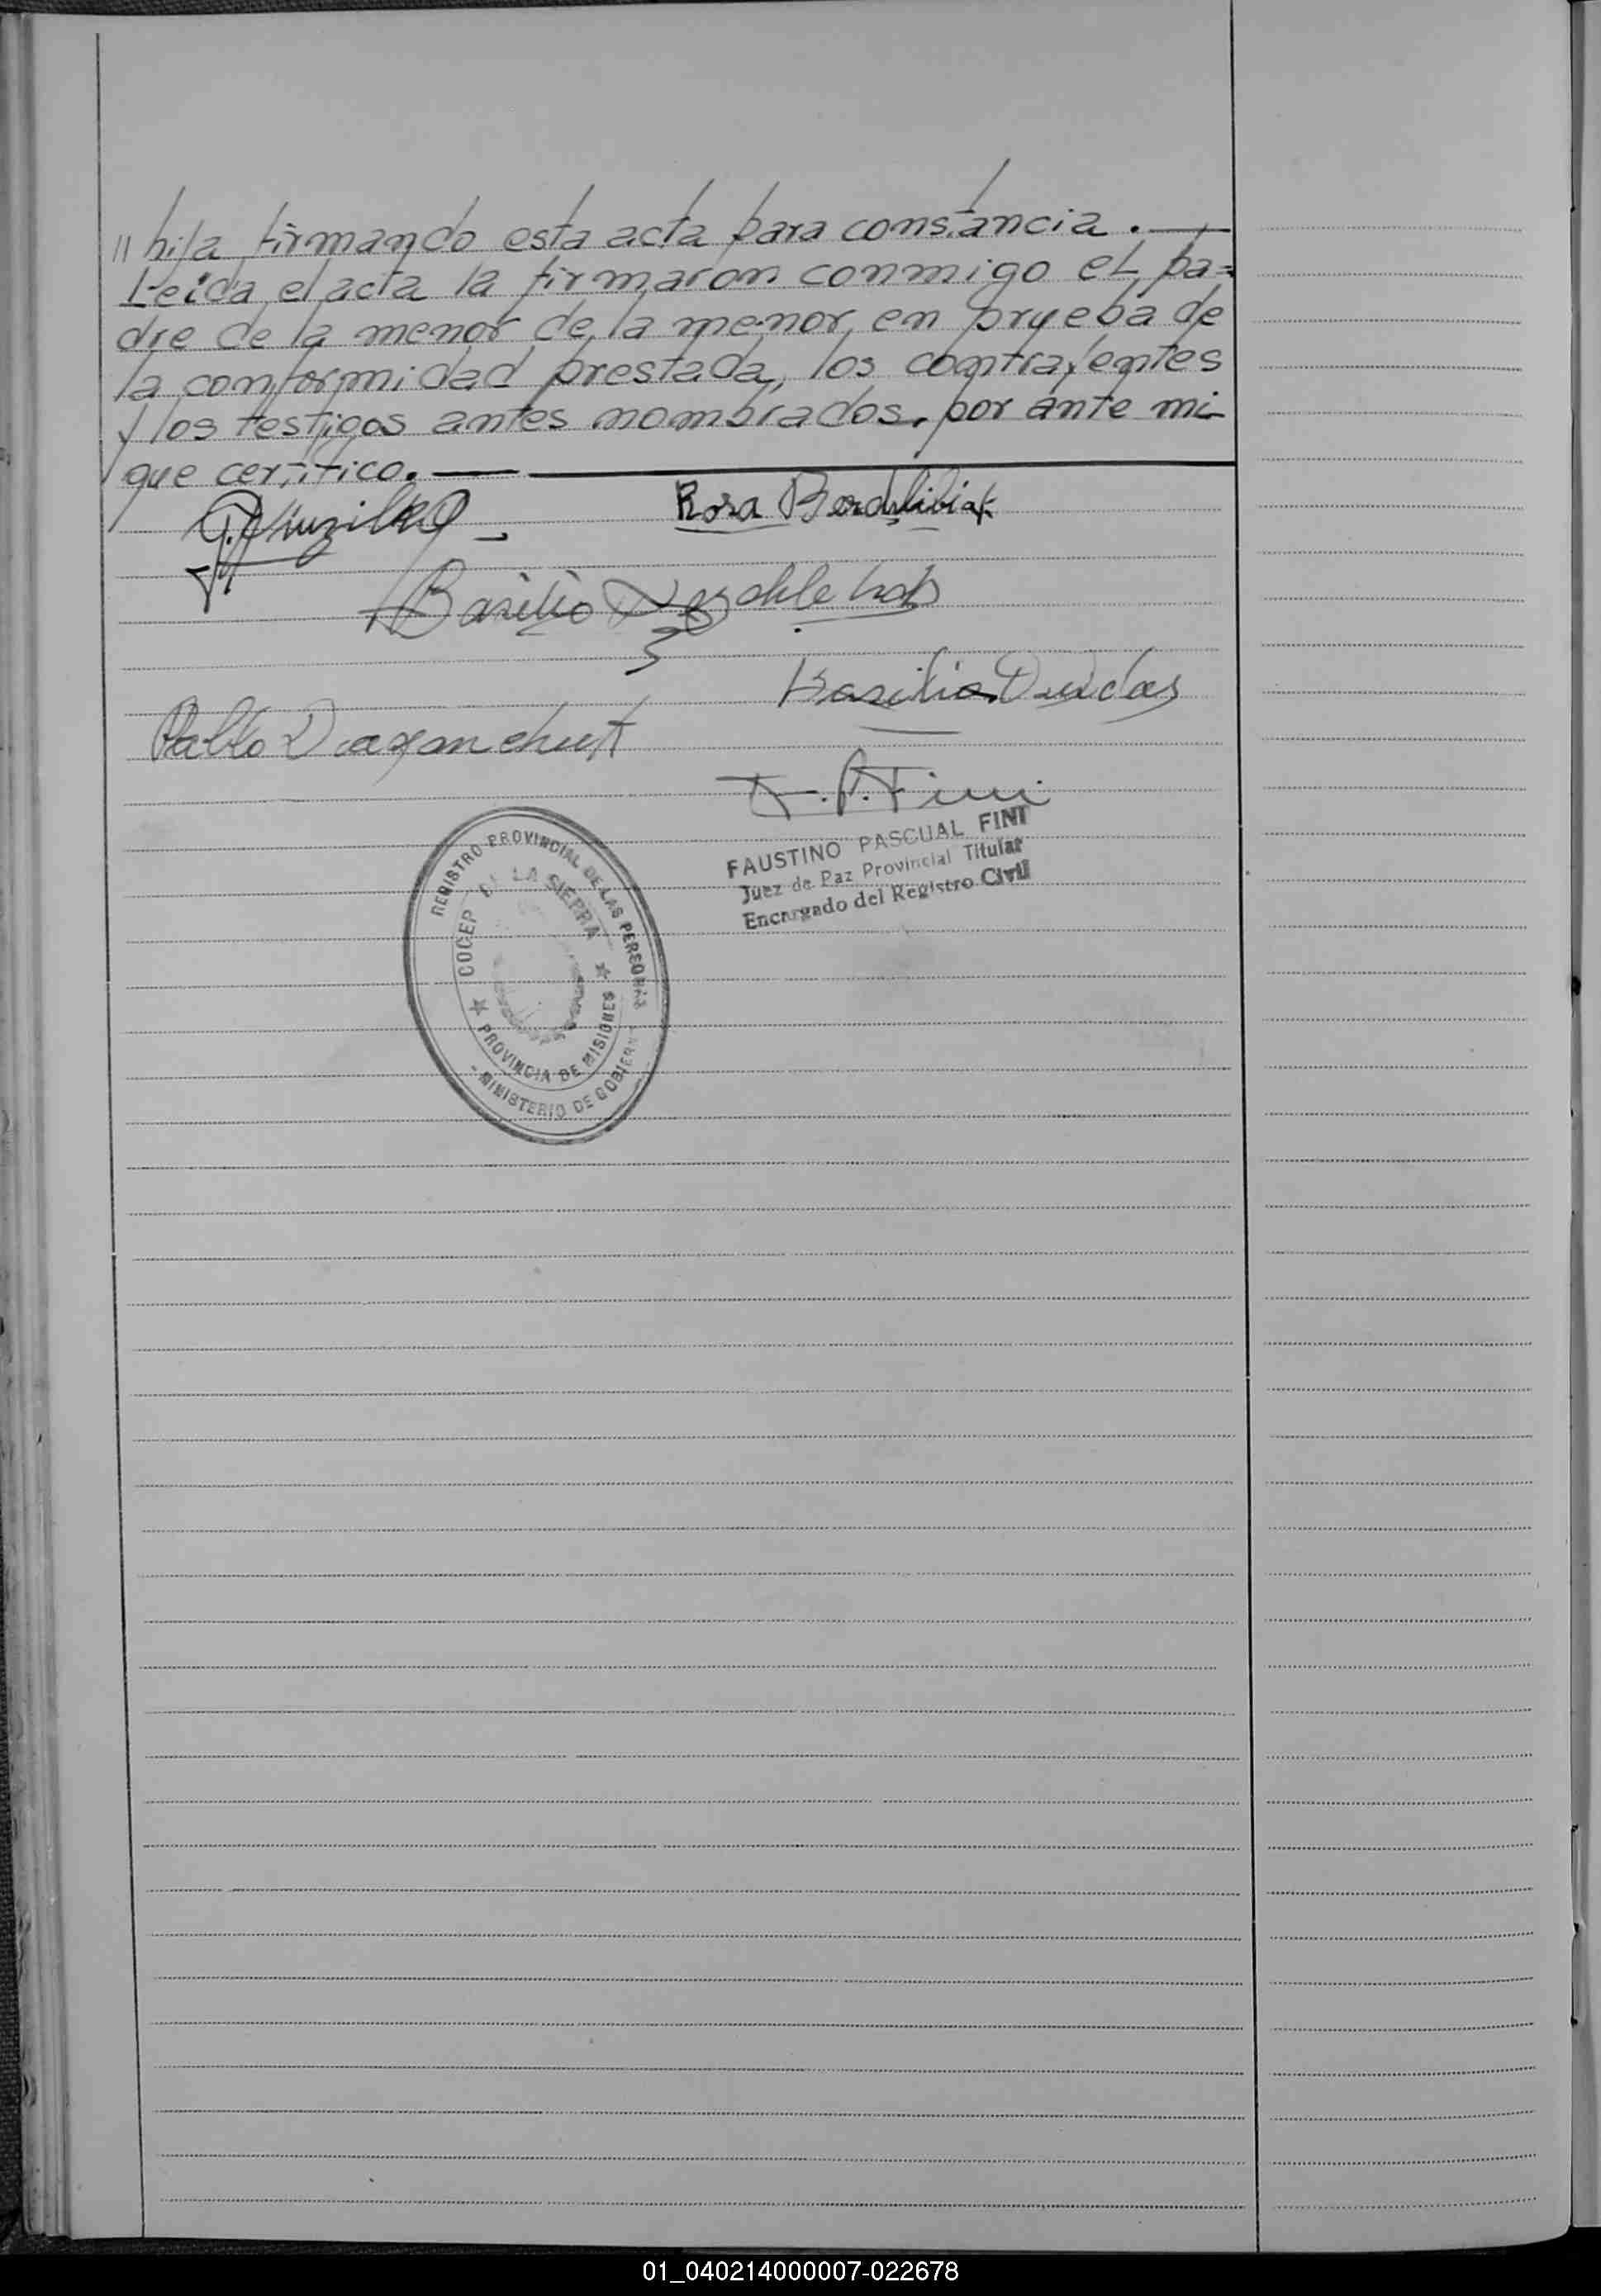 " hija firmando esta acta para constancia. —
Leída el acta la firmaron conmigo el pa=
dre de la menor de la menor, en prueba de
la conformidad prestada, los contrayentes
y los testigos antes nombrados, por ante mi
que certifico. —
Rosa
Basilio
Basilio Dudas
Pablo
F. P. Fini
FAUSTINO PASCUAL FINI
Juez de Paz Provincial Titular
Encargado del Registro Civil
REGISTRO PROVINCIAL DE LAS PERSONAS
- MINISTERIO DE GOBIERNO -
DE LA SIERRA
★ PROVINCIA DE MISIONES ★
01_040214000007-022678